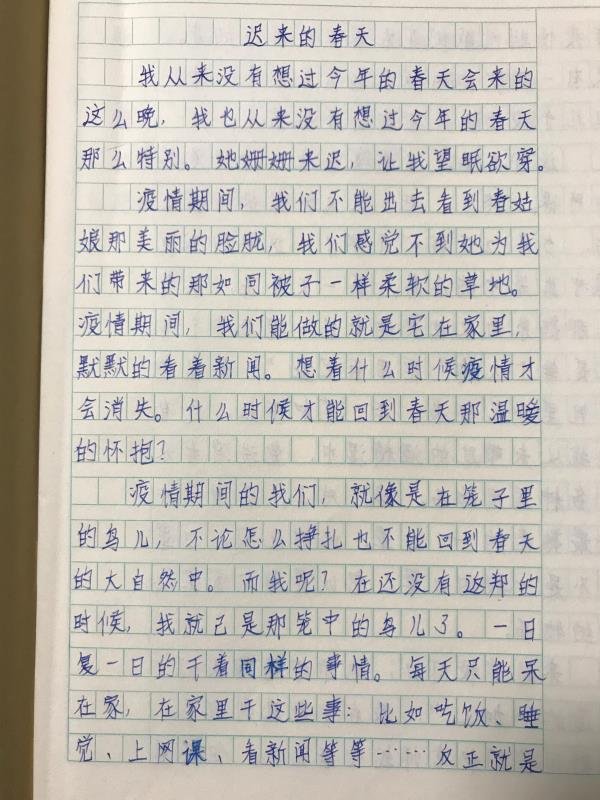 迟来的春天
我从来没有想过今年的春天会来的
这么晚，我也从来没有想过今年的春天
那么特别。她姗姗来迟，让我望眠欲穿。
疫情期间，我们不能出去看到春姑
娘那美丽的脸胧，我们感觉不到她为我
们带来的那如同被子一样柔软的草地。
疫情期间，我们能做的就是宅在家里，
默默的看着新闻。想着什么时候疫情才
会消失。什么时候才能回到春天那温暖
的怀抱？
疫情期间的我们，就像是在笼子里
的鸟儿，不论怎么挣扎也不能回到春天
的大自然中。而我呢？在还没有这邦的
时候，我就已是那笼中的鸟儿了。一日
复一日的干着同样的事情。每天只能呆
在家，在家里干这些事：比如吃饭、睡
觉、上网课、看新闻等等……反正就是